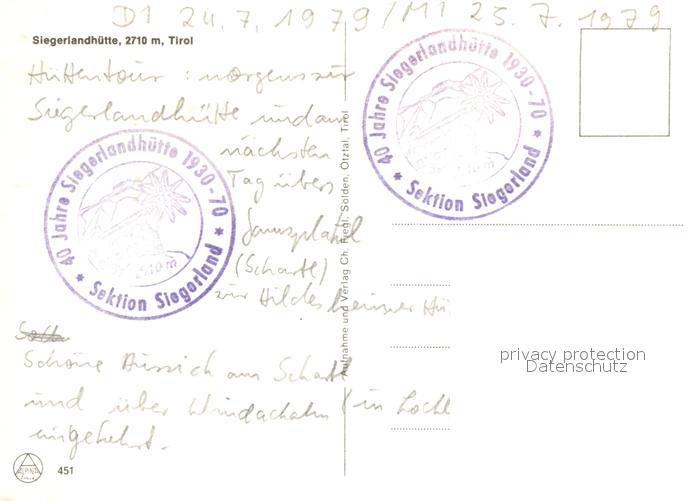 DI 24.7.1979/MI 25.7.1979
Siegerlandhütte, 2710 m, Tirol
Hüttentour: morgens zur
Siegerlandhütte und am
nächsten
Tag über
(Scharte)
zur Hildesheimer Hü
Schöne Aussich am Schart
und über Windachalm in
eingekehrt.
40 Jahre Siegerlandhütte 1930-70
Sektion Siegerland
2710 m
40 Jahre Siegerlandhütte 1930-70
Sektion Siegerland
Aufnahme und Verlag Ch. Riegl, Sölden, Ötztal, Tirol
privacy protection
Datenschutz
451